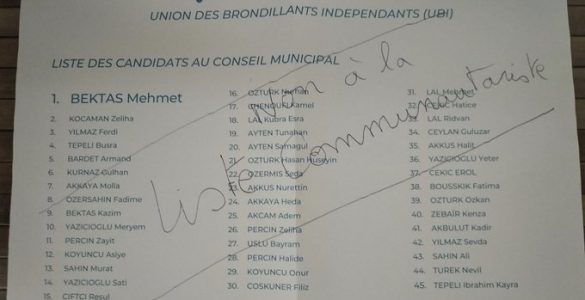 UNION DES BRONDILLANTS INDEPENDANTS (UBI)
LISTE DES CANDIDATS AU CONSEIL MUNICIPAL
1. BEKTAS Mehmet
2. KOCAMAN Zeliha
3. YILMAZ Ferdi
4. TEPELI Busra
5. BARDET Armand
6. KURNAZ Gulhan
7. AKKAYA Molla
8. ÖZERSAHIN Fadime
9. BEKTAS Kazim
10. YAZICIOGLU Meryem
11. PERCIN Zayit
12. KOYUNCU Asiye
13. SAHIN Murat
14. YAZICIOGLU Sati
15. CIFTCI Resul
16. OZTURK Nurhan
17. Kamel
18. LAL Kubra Esra
19. AYTEN Tunahan
20. AYTEN Samagul
21. OZTURK Hasan Huseyin
22. OZERMIS Seda
23. AKKUS Nurettin
24. AKKAYA Heda
25. AKCAM Adem
26. PERCIN Zeliha
27. USLU Bayram
28. PERCIN Halide
29. KOYUNCU Onur
30. COSKUNER Filiz
31. LAL Mehmet
32. Hatice
33. LAL Ridvan
34. CEYLAN Guluzar
35. AKKUS Halit
36. YAZICIOGLU Yeter
37. CEKIC EROL
38. BOUSSKIK Fatima
39. OZTURK Ozkan
40. ZEBAÏR Kenza
41. AKBULUT Kadir
42. YILMAZ Sevda
43. SAHIN Ali
44. TUREK Nevil
45. TEPELI Ibrahim Kayra
Non à la
liste Communautariste